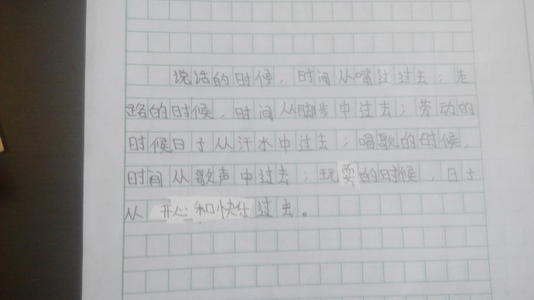 说话的时候，时间从嘴边过去；走
路的时候，时间从脚步中过去；劳动的
时候日子从汗水中过去；唱歌的时候，
时间从歌声中过去；玩耍的时候，日子
从开心和快乐过去。